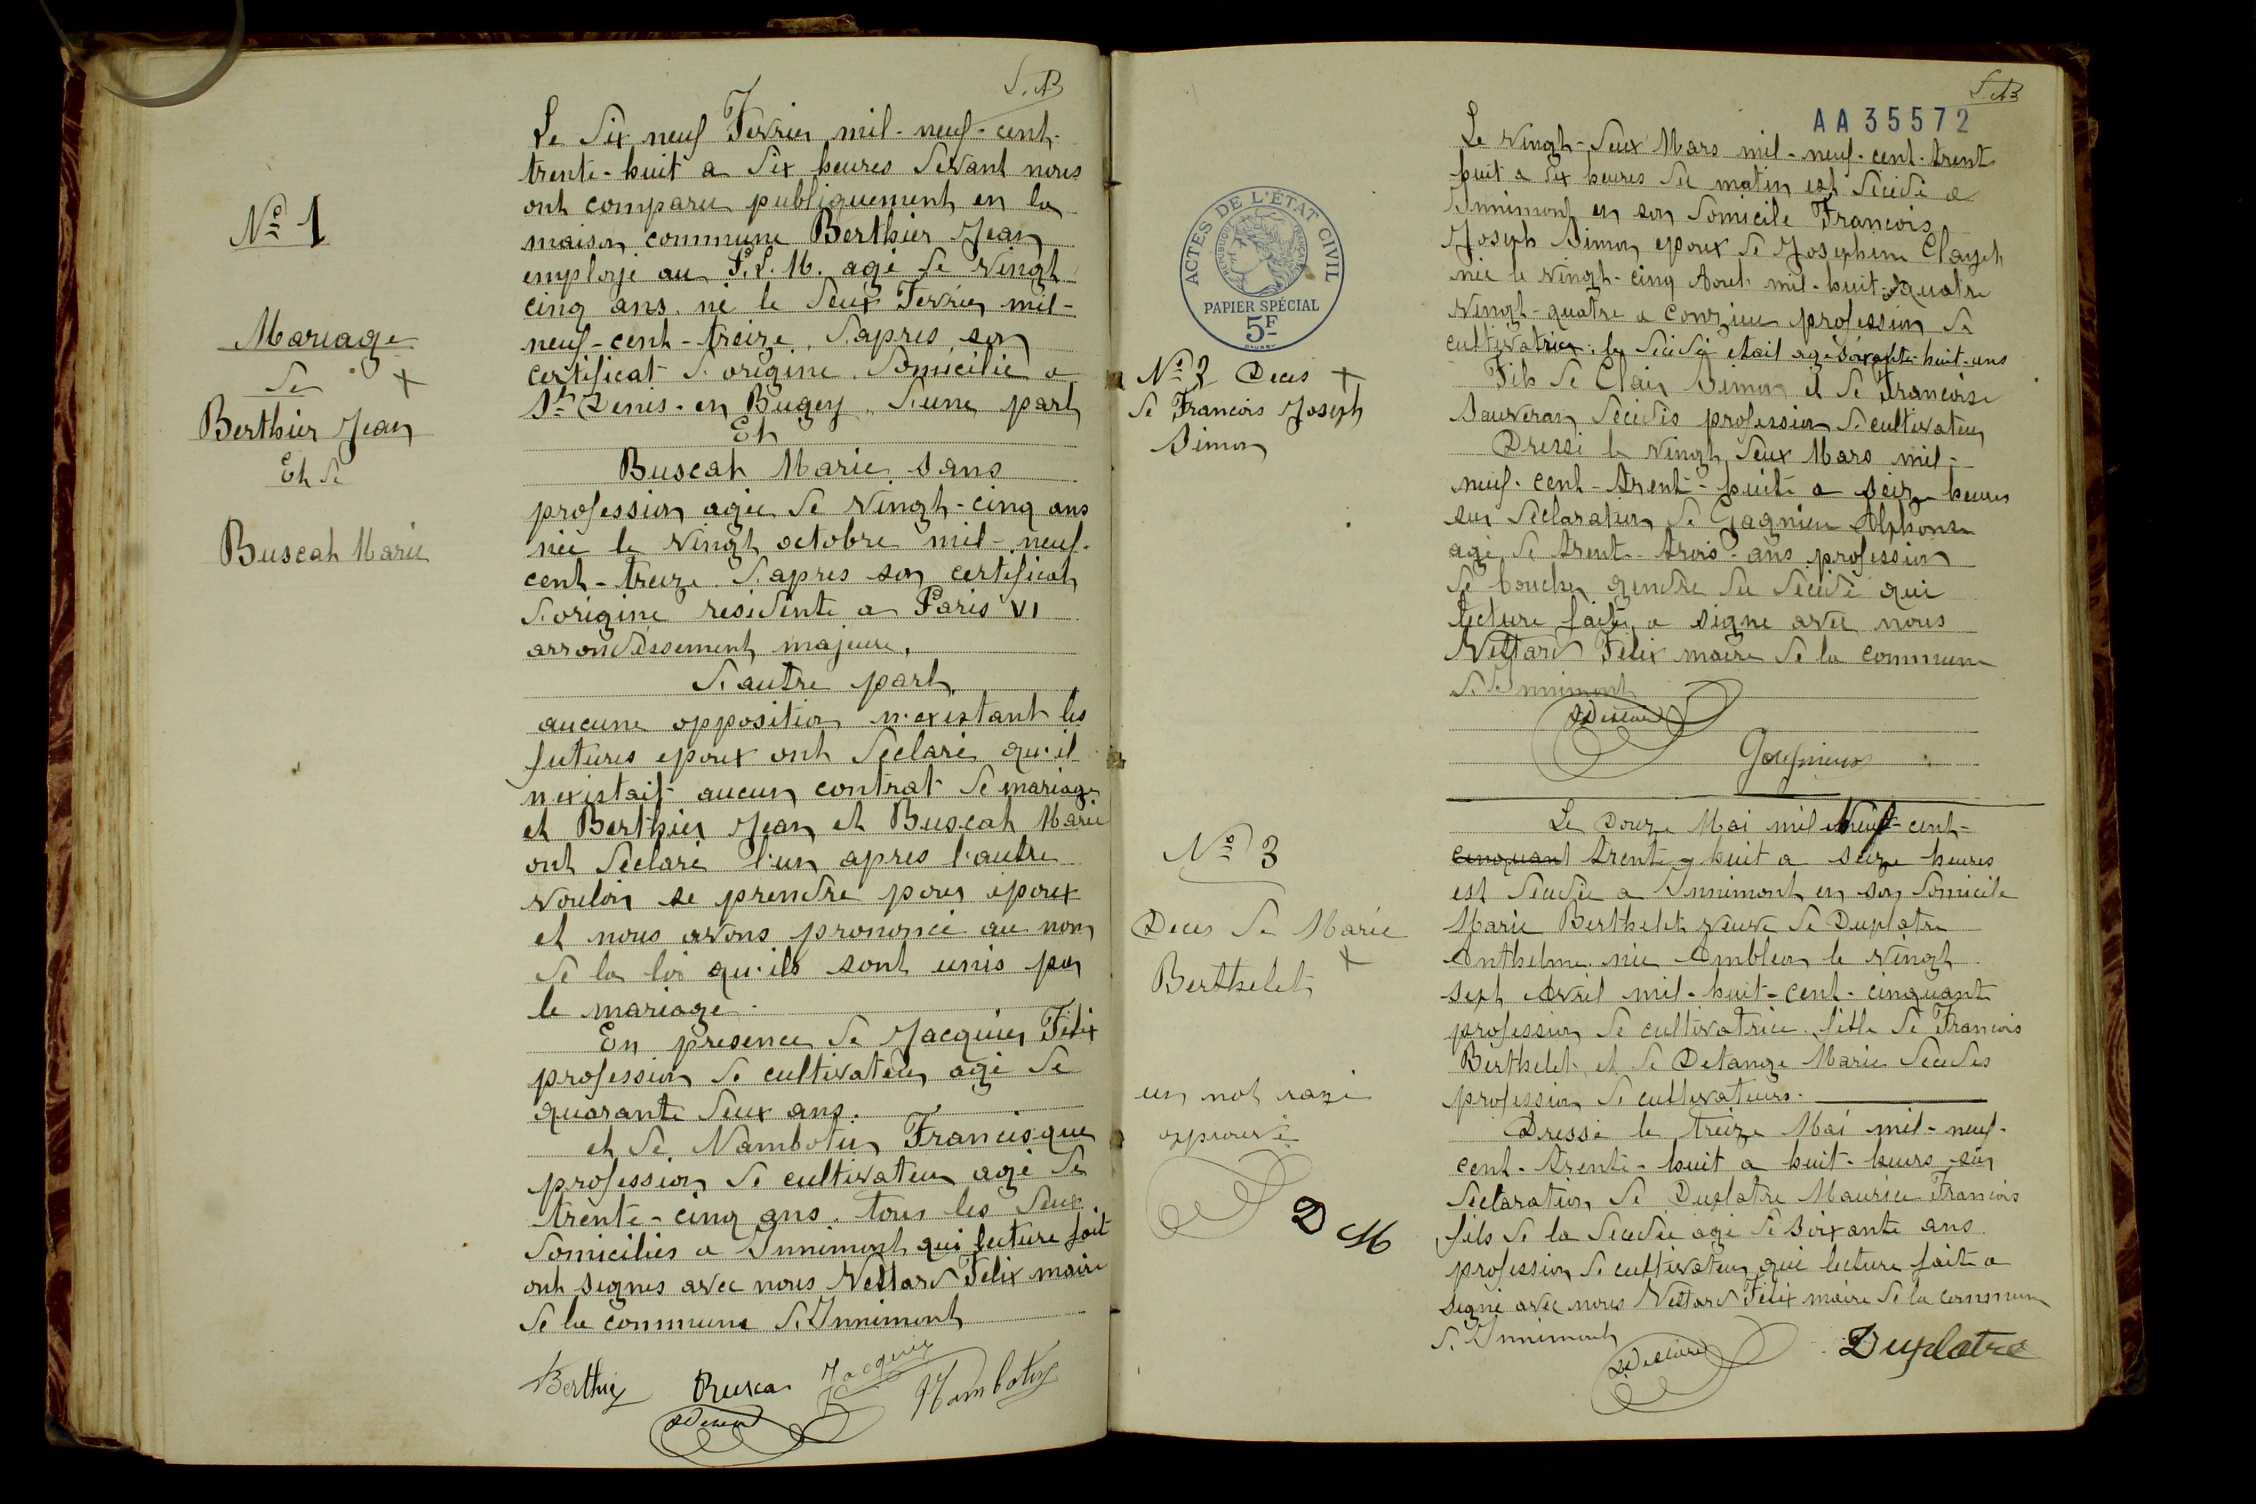 S. AB
Le dix neuf Fevrier mil-neuf-cent-
trente-huit a dix heures devant nous
ont comparu publiquement en la
maison commune Berthier Jean
employé au P.L.M. agé de vingt
cinq ans. né le deux Fevrier mil-
neuf-cent-treize, d'apres son
certificat d'origine. domicilié a
St Denis-en Bugey. d'une part
Et
Buscah Marie sans
profession agée de vingt-cinq ans
née le vingt octobre mil-neuf-
cent-treize. d'apres son certificat
d'origine residente a Paris VI
arrondissement majeure.
d'autre part
aucune opposition n'existant les
futures epoux ont déclaré qu'il
n'existait aucun contrat de mariage
et Berthier Jean et Buscah Marie
ont declaré l'un apres l'autre
vouloir se prendre pour époux
et nous avons prononcé au nom
de la loi qu'ils sont unis par
le mariage.
En presence de Jacquier Félix
profession de cultivateur agé de
quarante deux ans.
et de Nambotin Francisque
profession de cultivateur agé de
trente-cinq ans. tous les deux
domiciliés a Innimont qui lecture fait
ont signés avec nous Vettard Felix maire
de la commune d'Innimont
Berthier Busca Jacquier Nambotin
No 1
Mariage
de
Berthier Jean
Et de
Buscah Marie
S. AB
AA 35572
ACTES DE L'ÉTAT CIVIL
RÉPUBLIQUE FRANÇAISE
PAPIER SPÉCIAL
5F
No 2 Deces
de Francois Joseph
Simon
Le vingt-deux Mars mil-neuf-cent-trent
huit a dix heures du matin est décédé a
Innimont en son domicile Francois
Joseph Simon epoux de Josephine Clayet
née le vingt-cinq Aout mil-huit-quatre
vingt-quatre a Conzieu profession de
cultivatrice. le décédé etait agé soixante-huit-ans
Fils de Clair Simon et de Francoise
Sauveran décédés profession de cultivateur
Dressé le vingt deux Mars mil-
neuf-cent-trent-huit a seize heures
sur declaration de Gagnieu Alphonse
agé de trent-trois-ans profession
de boucher gendre du décédé qui
lecture faite a signé avec nous
Vettard Felix maire de la commune
d'Innimont
No 3
Deces de Marie
Berthelet
un mot razé
approuvé
D M
Le Douze Mai mil Neuf-cent-
cinquant trente-huit a seize heures
est décédée a Innimont en son domicile
Marie Berthelet veuve de Duplatre
Anthelme. née Ambléon le vingt
sept Avril mil-huit-cent-cinquante
profession de cultivatrice. fille de Francois
Berthelet et de Detange Marie décédés
profession de cultivateurs.
Dressé le treize Mai mil-neuf-
cent-trente-huit a huit-heurs sur
declaration de Duplatre Maurice Francois
fils de la décédée agé de soixante ans
profession de cultivateur qui lecture faite a
signé avec nous Vettard Félix maire de la commune
d'Innimont
Duplatre